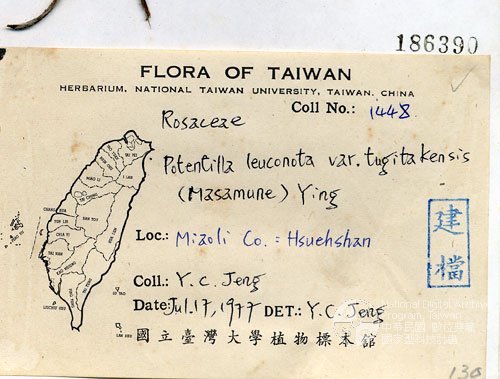 186390
FLORA OF TAIWAN
HERBARIUM, NATIONAL TAIWAN UNIVERSITY, TAIWAN, CHINA
Coll No.: 1448
Rosaceae
Potentilla leuconota var. tugitakensis
(Masamune) Ying
建檔
Loc.: Miaoli Co. : Hsuehshan
Coll.: Y. C. Jeng
Date: Jul. 17, 1977 DET.: Y. C. Jeng
國立臺灣大學植物標本館
National Digital Archives
Program, Taiwan
130